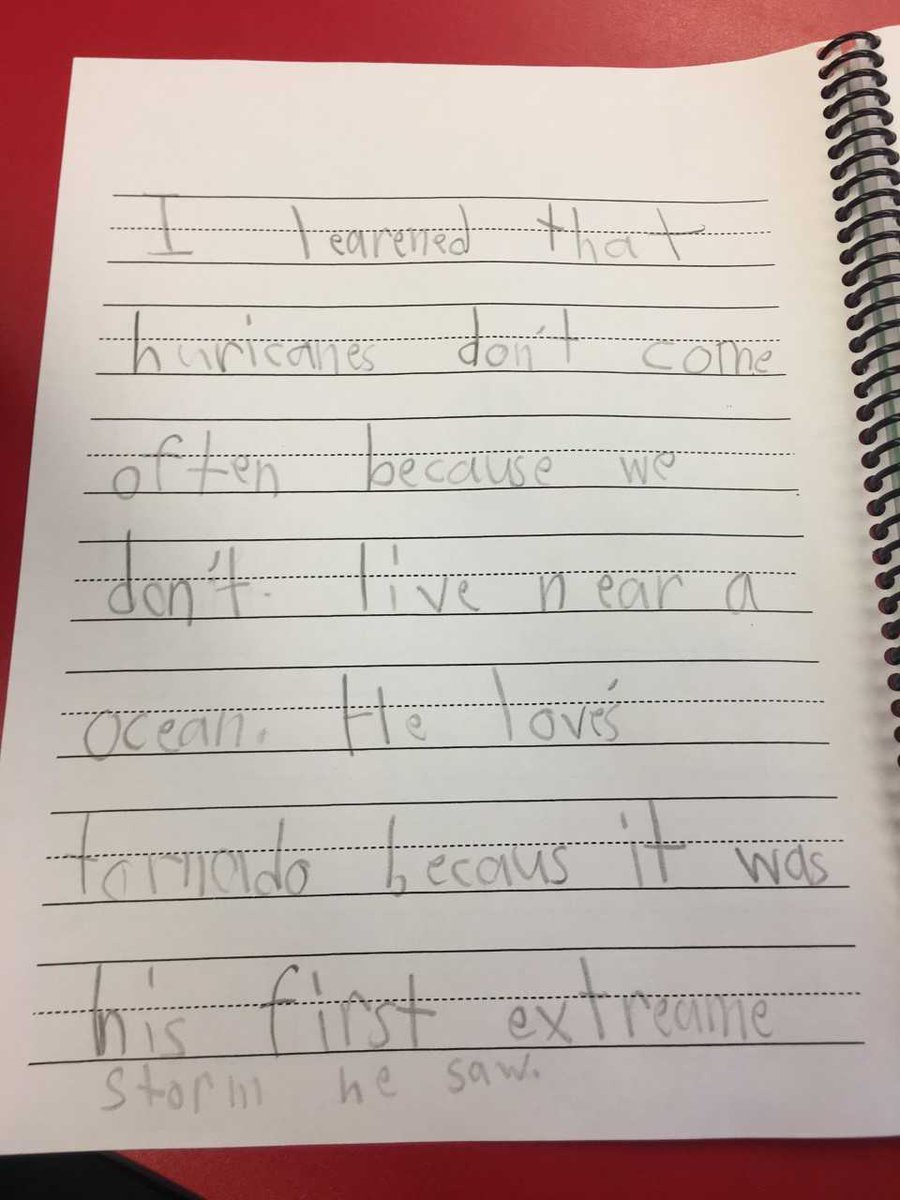 I learened that
huricanes don't come
often because we
don't. live near a
ocean. He love's
tornado becaus it was
his first extreame
storm he saw.